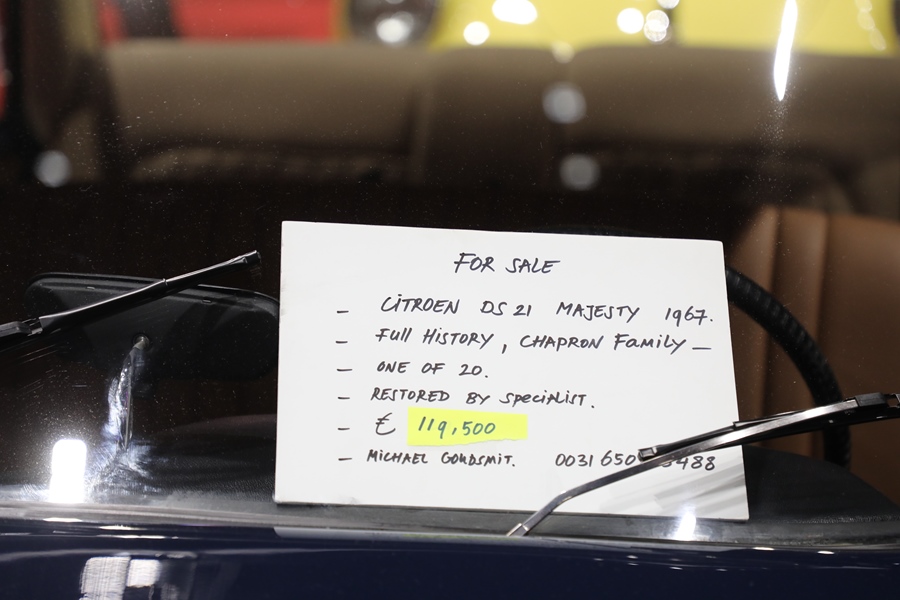 FOR SALE
- CITROEN DS 21 MAJESTY 1967.
- Full HISTORY, CHAPRON Family -
- ONE OF 20.
- RESTORED BY SPECIALIST.
- € 119,500
- MICHAEL GOUDSMIT. 0031 650 488